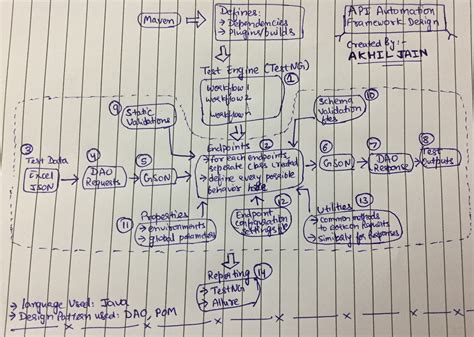 Maven
Defines:
→ Dependencies
→ Plugins/builds
API Automation
Framework Design
Created By:-
AKHIL JAIN
Test Engine (TestNG)
1
workflow 1
workflow 2
workflow n
9
Static
Validations
10
Schema
Validation
files
Endpoints
2
→ for each endpoints
seperate class created
→ define every possible
behavior here
3
Test Data
Excel
JSON
4
DAO
Requests
5
GSON
6
GSON
7
DAO
Response
8
Test
Outputs
11
Properties
→ environments
→ global parameters
12
Endpoint
Configuration
Settings file
Utilities
13
→ common methods
to all requests
→ similarly for Responses
Reporting
14
→ TestNG
→ Allure
→ language Used: Java
→ Design Pattern used: DAO, POM